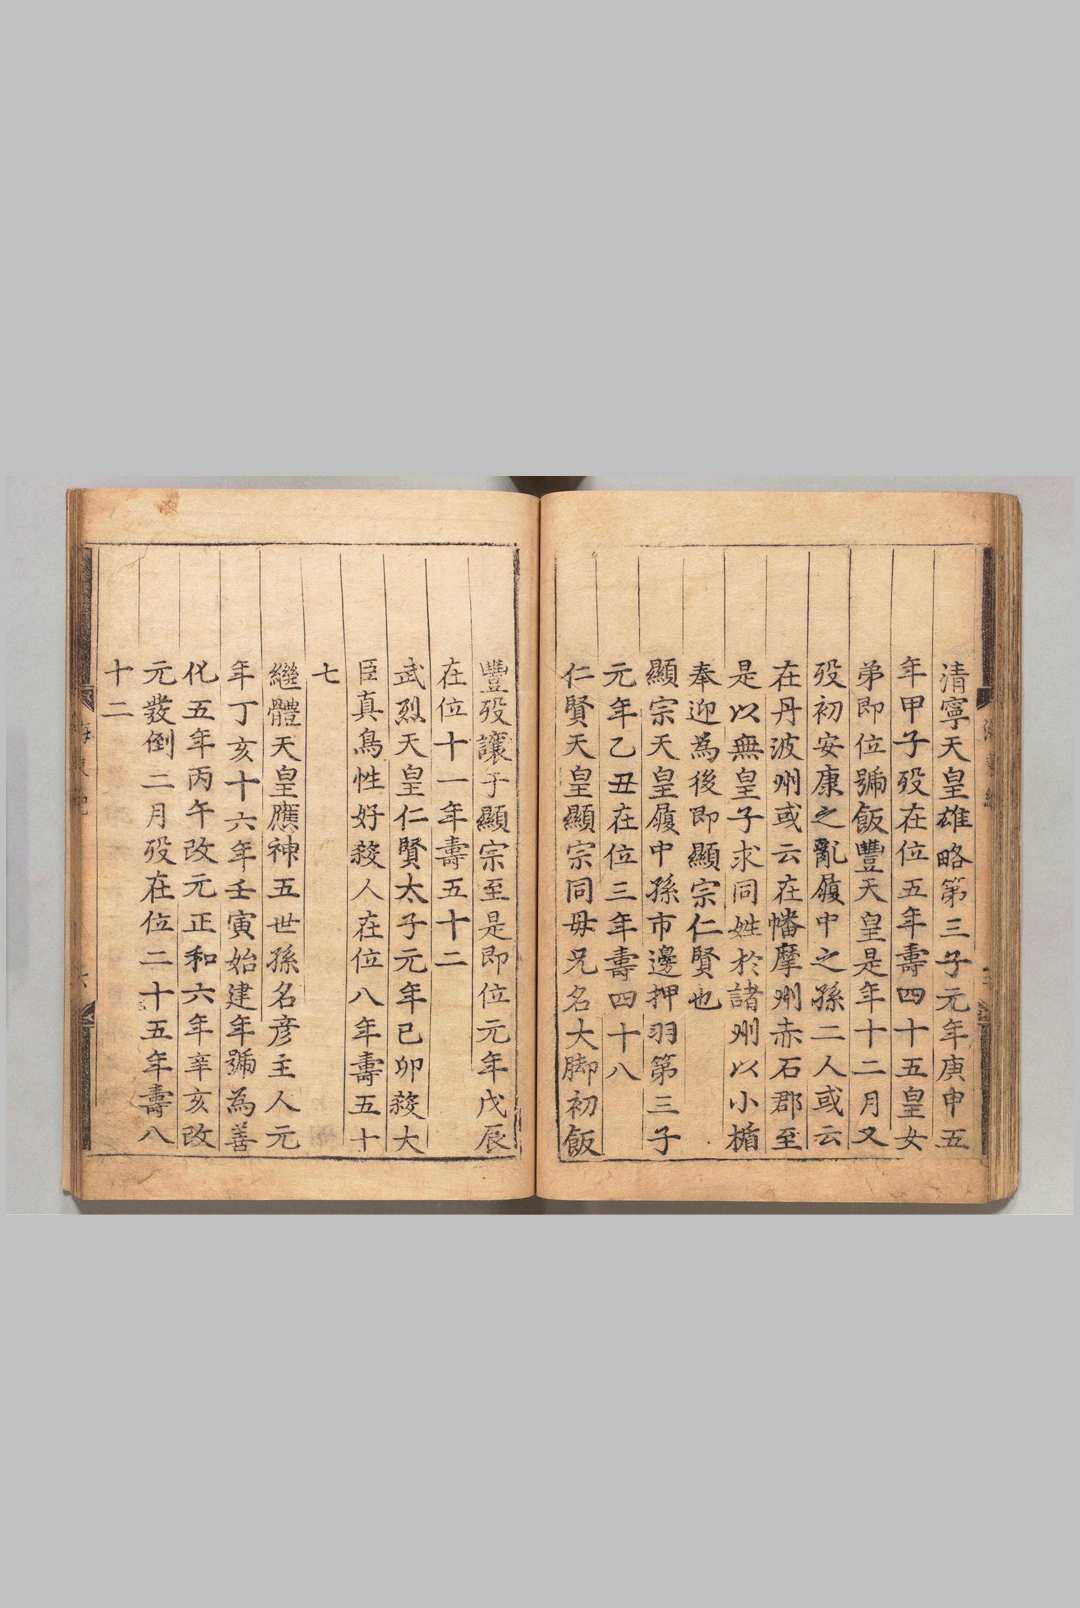 清寧天皇雄略第三子元年庚申五
年甲子歿在位五年壽四十五皇女
弟即位號飯豐天皇是年十二月又
歿初安康之亂履中之孫二人或云
在丹波州或云在幡摩州赤石郡至
是以無皇子求同姓於諸州以小楯
奉迎為後即顯宗仁賢也
顯宗天皇履中孫市邊押羽第三子
元年乙丑在位三年壽四十八
仁賢天皇顯宗同母兄名大脚初飯
豐歿讓于顯宗至是即位元年戊辰
在位十一年壽五十二
武烈天皇仁賢太子元年己卯殺大
臣真鳥性好殺人在位八年壽五十
七
繼體天皇應神五世孫名彦主人元
年丁亥十六年壬寅始建年號為善
化五年丙午改元正和六年辛亥改
元發倒二月歿在位二十五年壽八
十二